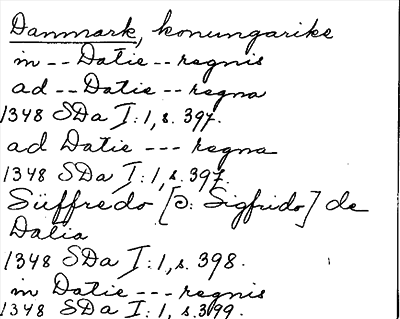 Danmark, konungarike
in -- Datie -- regnis
ad -- Datie -- regna
1348 SDa I:1, s. 397.
ad Datie --- regna
1348 SDa I:1, s. 397.
Süffredo [ɔ: Sigfrido] de
Dalia
1348 SDa I:1, s. 398.
in Datie --- regnis
1348 SDa I:1, s. 399.